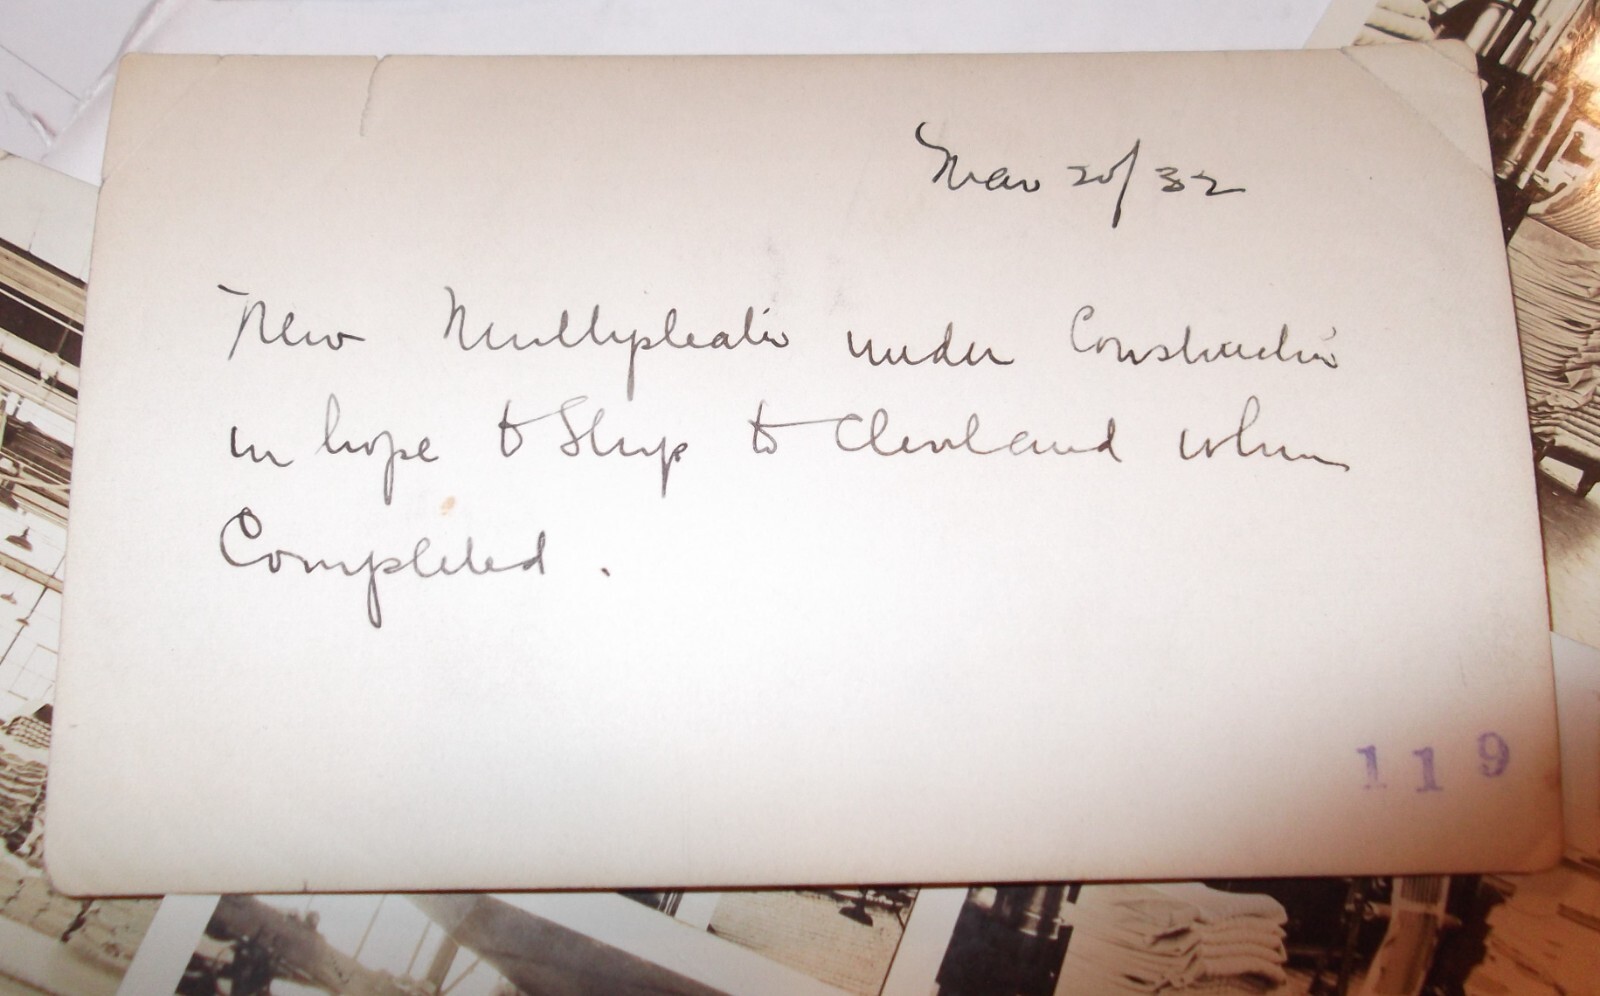 Mar 20/32
New Multiplicatin under Constructin
in hope to Ship to Cleveland when
Completed.
119